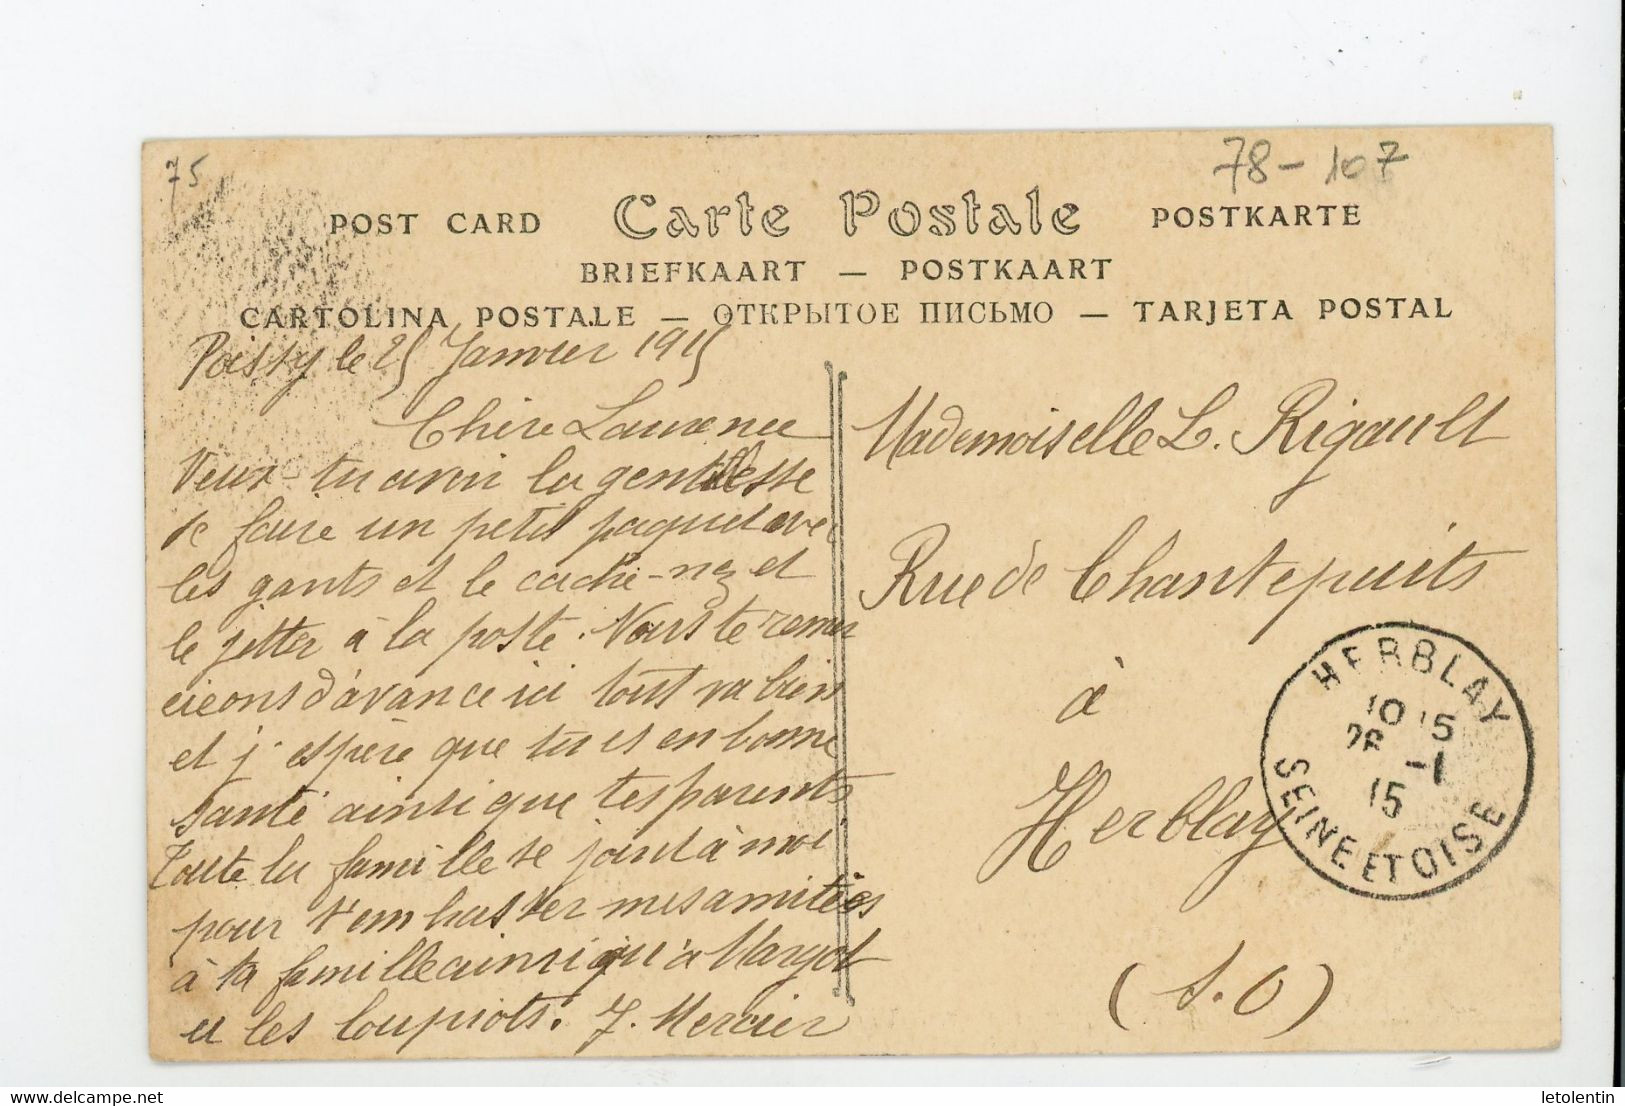 75
78-107
POST CARD Carte Postale POSTKARTE
BRIEFKAART — POSTKAART
CARTOLINA POSTALE — ОТКРЫТОЕ ПИСЬМО — TARJETA POSTAL
Poissy le 25 Janvier 1915
Chère Laurence
Veux-tu avoir la gentillesse
de faire un petit paquet avec
les gants et le cache-nez et
le jetter à la poste. Nous te remer
cicons d'avance ici tout va bien
et j'espère que tu es en bonne
santé ainsi que tes parents
Toute la famille se joint à moi
pour t'embasser mes amitiées
à ta famille ainsi qu'à Margot
et les loupiots. J. Mercier
Mademoiselle L. Rigault
Rue de Chantepuits
à
Herblay
(S.O)
HERBLAY
10 15
26 -1
15
SEINE ET OISE
delcampe.net
letolentin